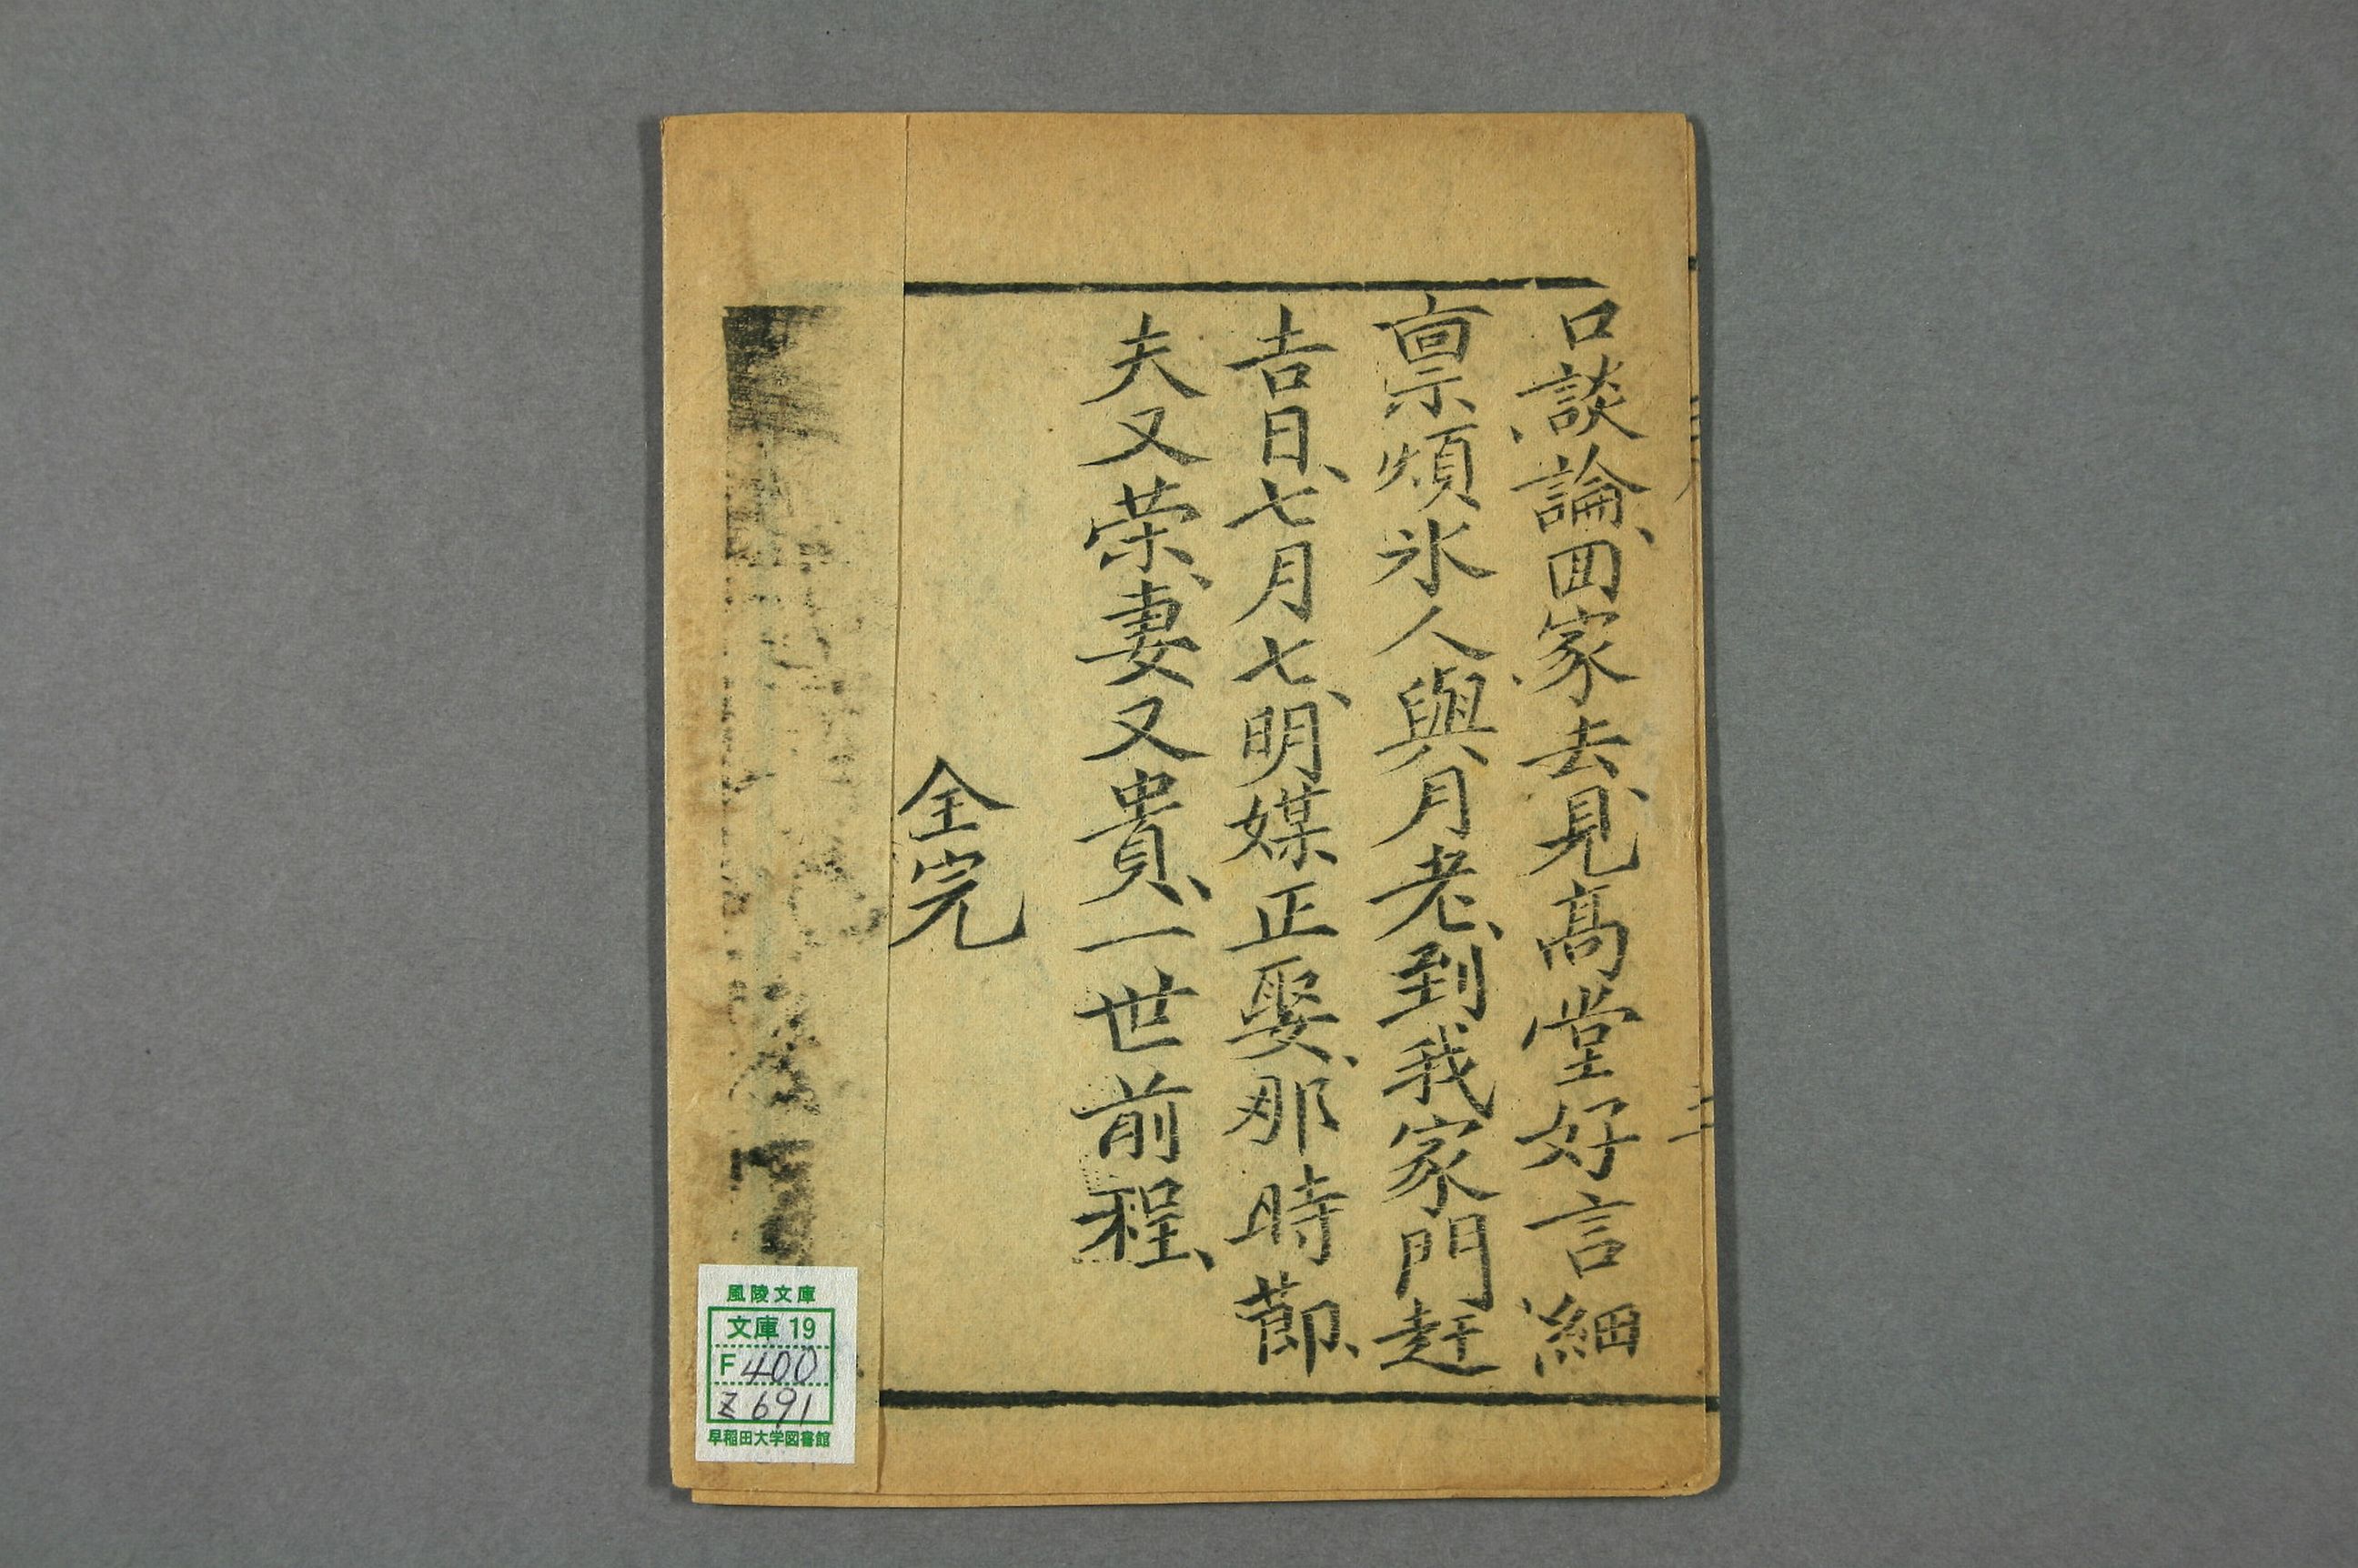 口談論、囬家去、見髙堂好言細
禀煩氷人與月老、到我家門赶
吉日、七月七、明媒正娶、那時節、
夫又荣、妻又貴、一世前程、
全完
二
風陵文庫
文庫 19
F400
Z691
早稲田大学図書館